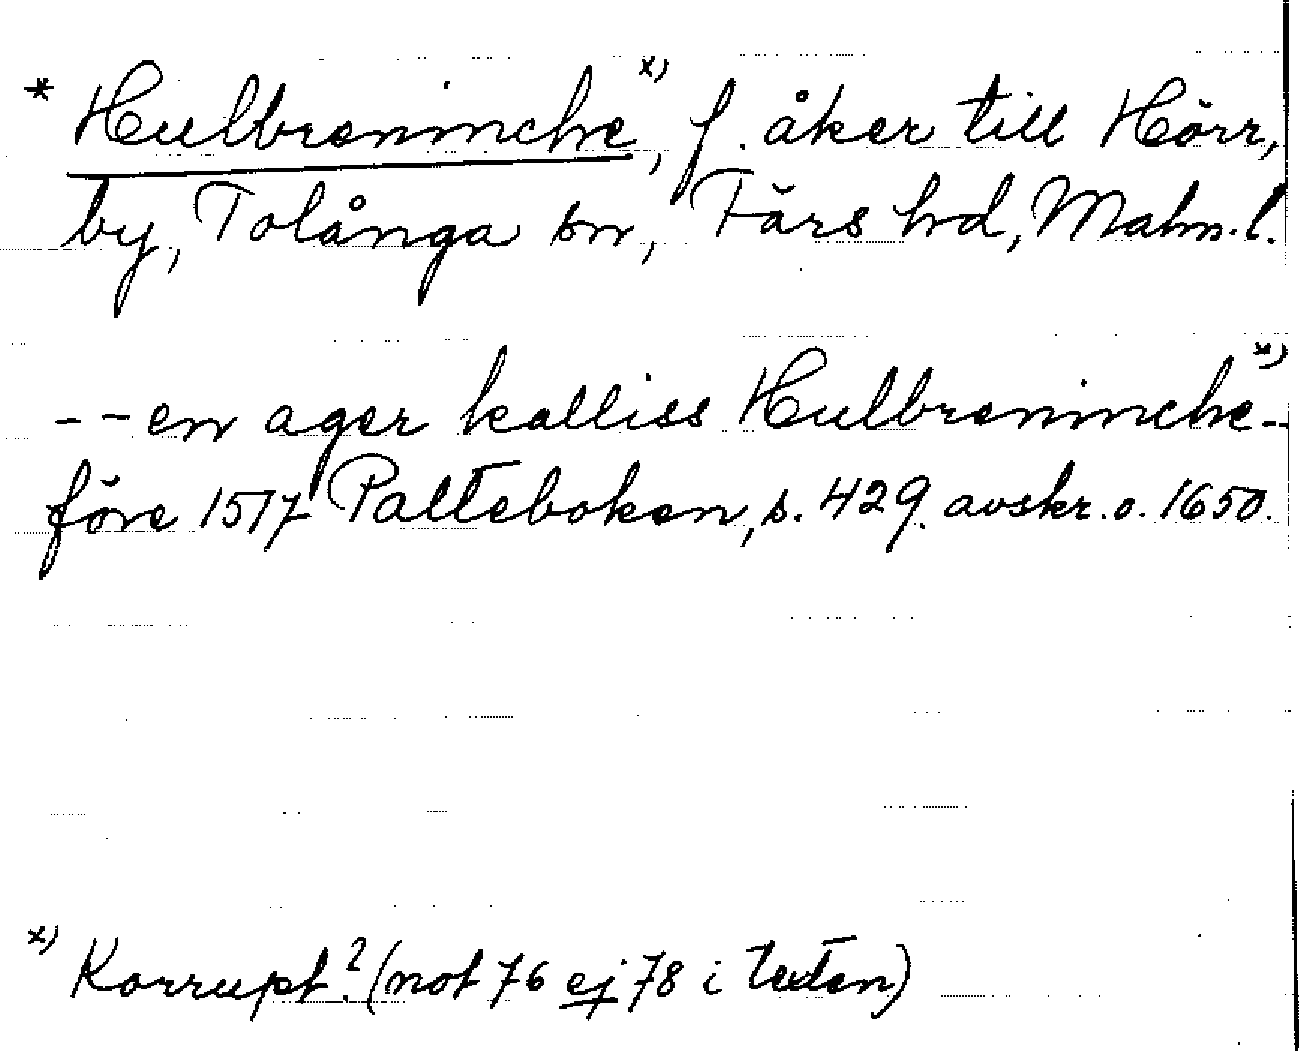 * Hulbreninche x), f. åker till Hörr,
by, Tolånga sn, Färs hd, Malm. l.
-- en ager kalliss Hulbreninche x) --
före 1517 Palteboken, s. 429. avskr. o. 1650.
x) Korrupt.? (not 76 ej 78 i texten)